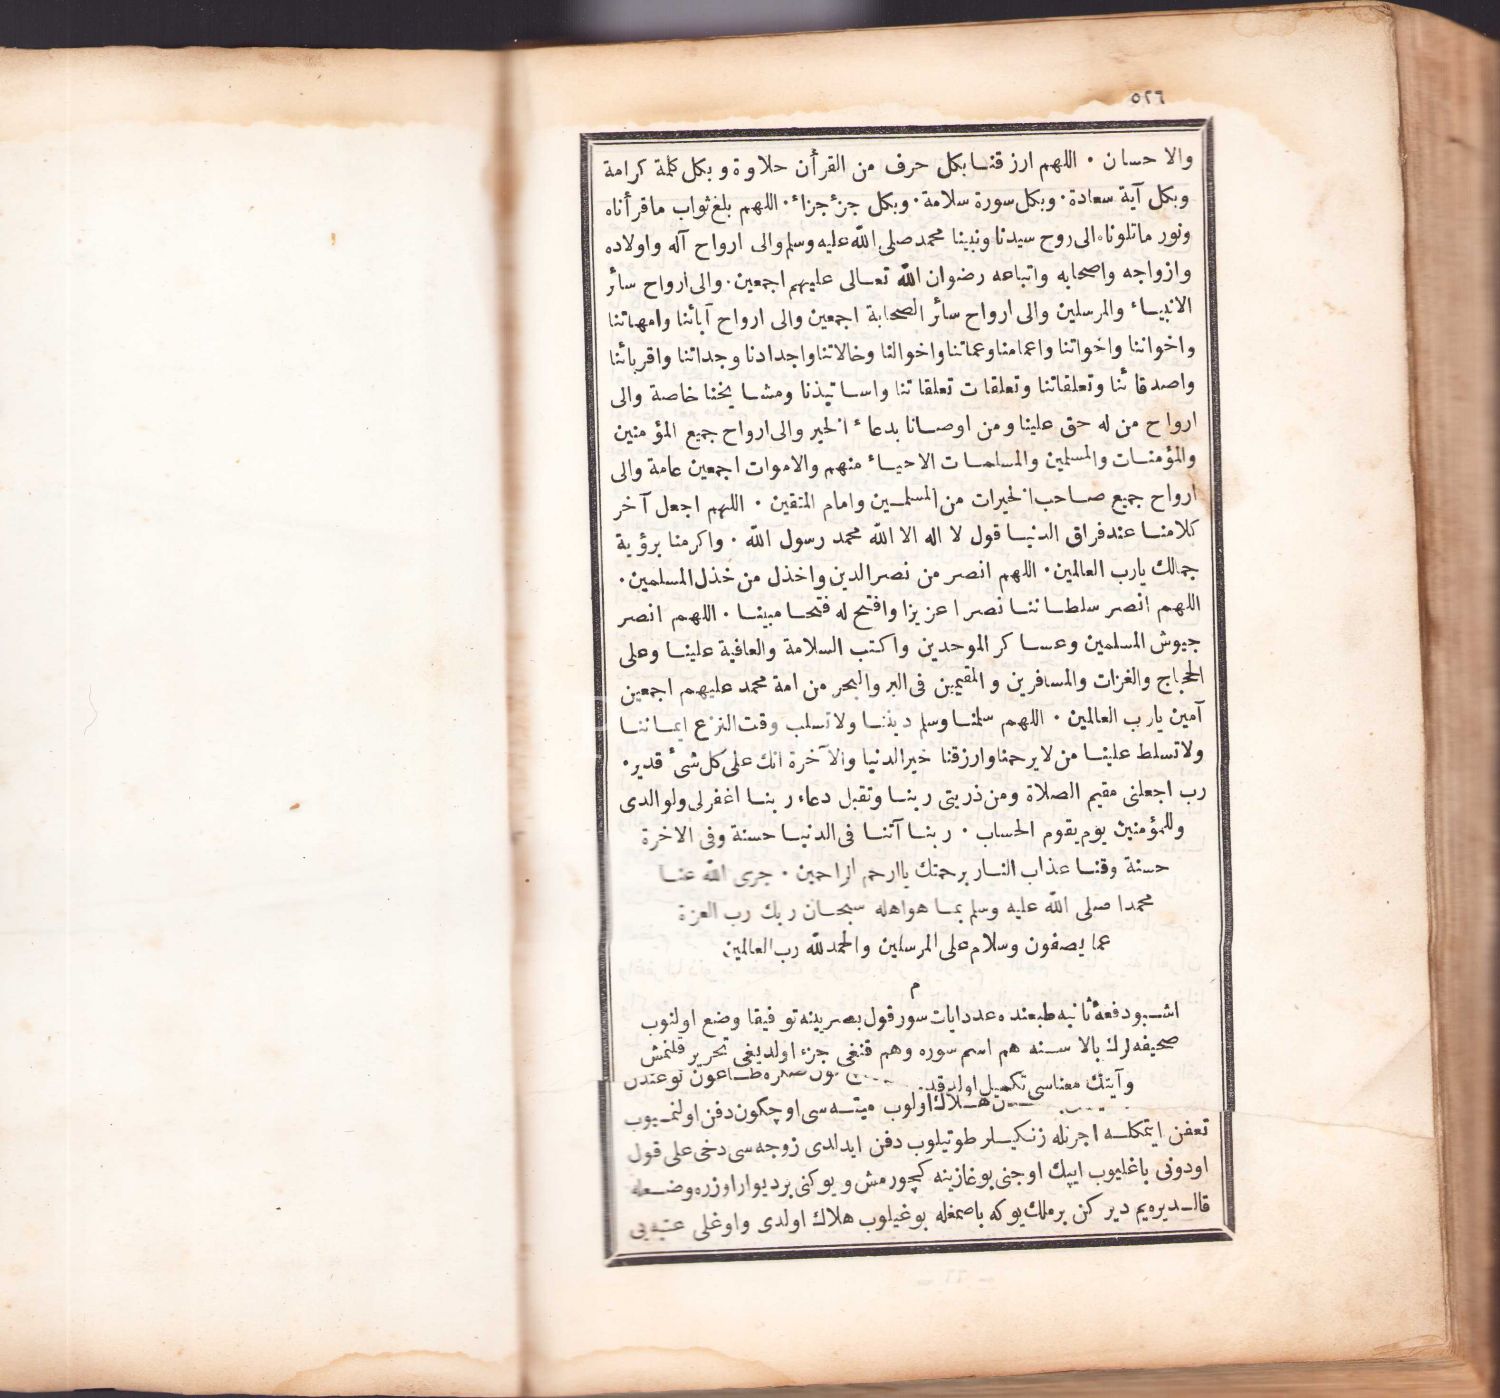 ٥٢٦
والاحسان ٠ اللهم ارزقنا بكل حرف من القرأن حلاوة وبكل كلمة كرامة
وبكل آية سعادة ٠ وبكل سورة سلامة ٠ وبكل جزء جزاء ٠ اللهم بلغ ثواب ماقرأناه
ونور ماتلوناه الى روح سيدنا ونبينا محمد صلى الله عليه وسلم والى ارواح آله واولاده
وازواجه واصحابه واتباعه رضوان الله تعالى عليهم اجمعين ٠ والى ارواح سائر
الانبياء والمرسلين والى ارواح سائر الصحابة اجمعين والى ارواح آبائنا وامهاتنا
واخواننا واخواتنا واعمامنا وعماتنا واخوالنا وخالاتنا واجدادنا وجداتنا واقربائنا
واصدقائنا وتعلقاتنا وتعلقات تعلقاتنا واساتيذنا ومشايخنا خاصة والى
ارواح من له حق علينا ومن اوصانا بدعاء الخير والى ارواح جميع المؤمنين
والمؤمنات والمسلمين والمسلمات الاحياء منهم والاموات اجمعين عامة والى
ارواح جميع صاحب الخيرات من المسلمين وامام المتقين ٠ اللهم اجعل آخر
كلامنا عند فراق الدنيا قول لا اله الا الله محمد رسول الله ٠ واكرمنا برؤية
جمالك يارب العالمين ٠ اللهم انصر من نصر الدين واخذل من خذل المسلمين ٠
اللهم انصر سلطاننا نصرا عزيزا وافتح له فتحا مبينا ٠ اللهم انصر
جيوش المسلمين وعساكر الموحدين واكتب السلامة والعافية علينا وعلى
الحجاج والغزات والمسافرين والمقيمين فى البر والبحر من امة محمد عليهم اجمعين
آمين يارب العالمين ٠ اللهم سلمنا وسلم ديننا ولاتسلب وقت النزع ايماننا
ولاتسلط علينا من لايرحمنا وارزقنا خير الدنيا والآخرة انك على كل شئ قدير ٠
رب اجعلنى مقيم الصلاة ومن ذريتى ربنا وتقبل دعاء ربنا اغفرلى ولوالدى
وللمؤمنين يوم يقوم الحساب ٠ ربنا آتنا فى الدنيا حسنة وفى الاخرة
حسنة وقنا عذاب النار برحمتك ياارحم الراحمين ٠ جزى الله عنا
محمدا صلى الله عليه وسلم بما هو اهله سبحان ربك رب العزة
عما يصفون وسلام على المرسلين والحمد لله رب العالمين
م
اشبو دفعۀ ثانيه طبعنده عدد ايات سور قول بصريينه توفيقا وضع اولنوب
صحيفه لرك بالاسنه هم اسم سوره وهم قنغى جزء اولديغى تحرير قلنمش
وآيتك معناسى تكميل اولدقده
هلاك اولوب ميته سى اوچ كون دفن اولنميوب
تعفن ايتمكله اجرتله زنكيلر طوتيلوب دفن ايدلدى زوجه سى دخى على قول
اودونى باغليوب ايپك اوجنى بوغازينه كچورمش ويوكنى بر ديوار اوزره وضعله
قالديره يم دير كن بر ملك يوكه باصمغله بوغيلوب هلاك اولدى واوغلى عتبه يى